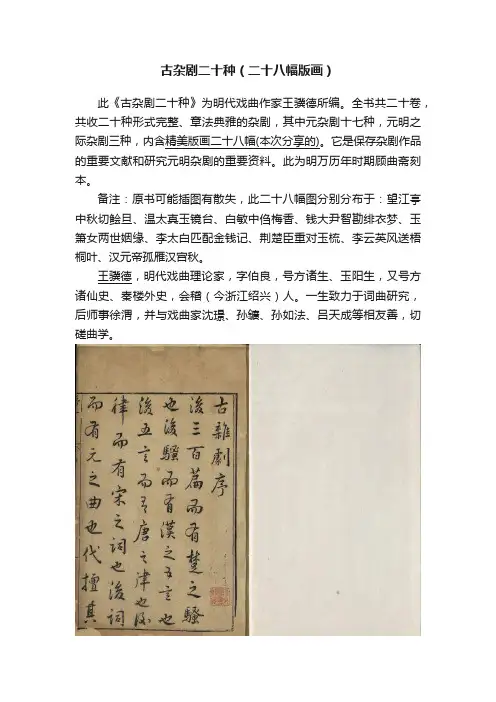 古杂剧二十种（二十八幅版画）
此《古杂剧二十种》为明代戏曲作家王骥德所编。全书共二十卷，
共收二十种形式完整、章法典雅的杂剧，其中元杂剧十七种，元明之
际杂剧三种，内含精美版画二十八幅(本次分享的)。它是保存杂剧作品
的重要文献和研究元明杂剧的重要资料。此为明万历年时期顾曲斋刻
本。
备注：原书可能插图有散失，此二十八幅图分别分布于：望江亭
中秋切鲙旦、温太真玉镜台、白敏中㑇梅香、钱大尹智勘绯衣梦、玉
箫女两世姻缘、李太白匹配金钱记、荆楚臣重对玉梳、李云英风送梧
桐叶、汉元帝孤雁汉宫秋。
王骥德，明代戏曲理论家，字伯良，号方诸生、玉阳生，又号方
诸仙史、秦楼外史，会稽（今浙江绍兴）人。一生致力于词曲研究，
后师事徐渭，并与戏曲家沈璟、孙鑛、孙如法、吕天成等相友善，切
磋曲学。
古雜劇序
後三百篇而有楚之騷
也後騷而有漢之五言也
後五言而有唐之律也後
律而有宋之词也後词
而有元之曲也代擅其